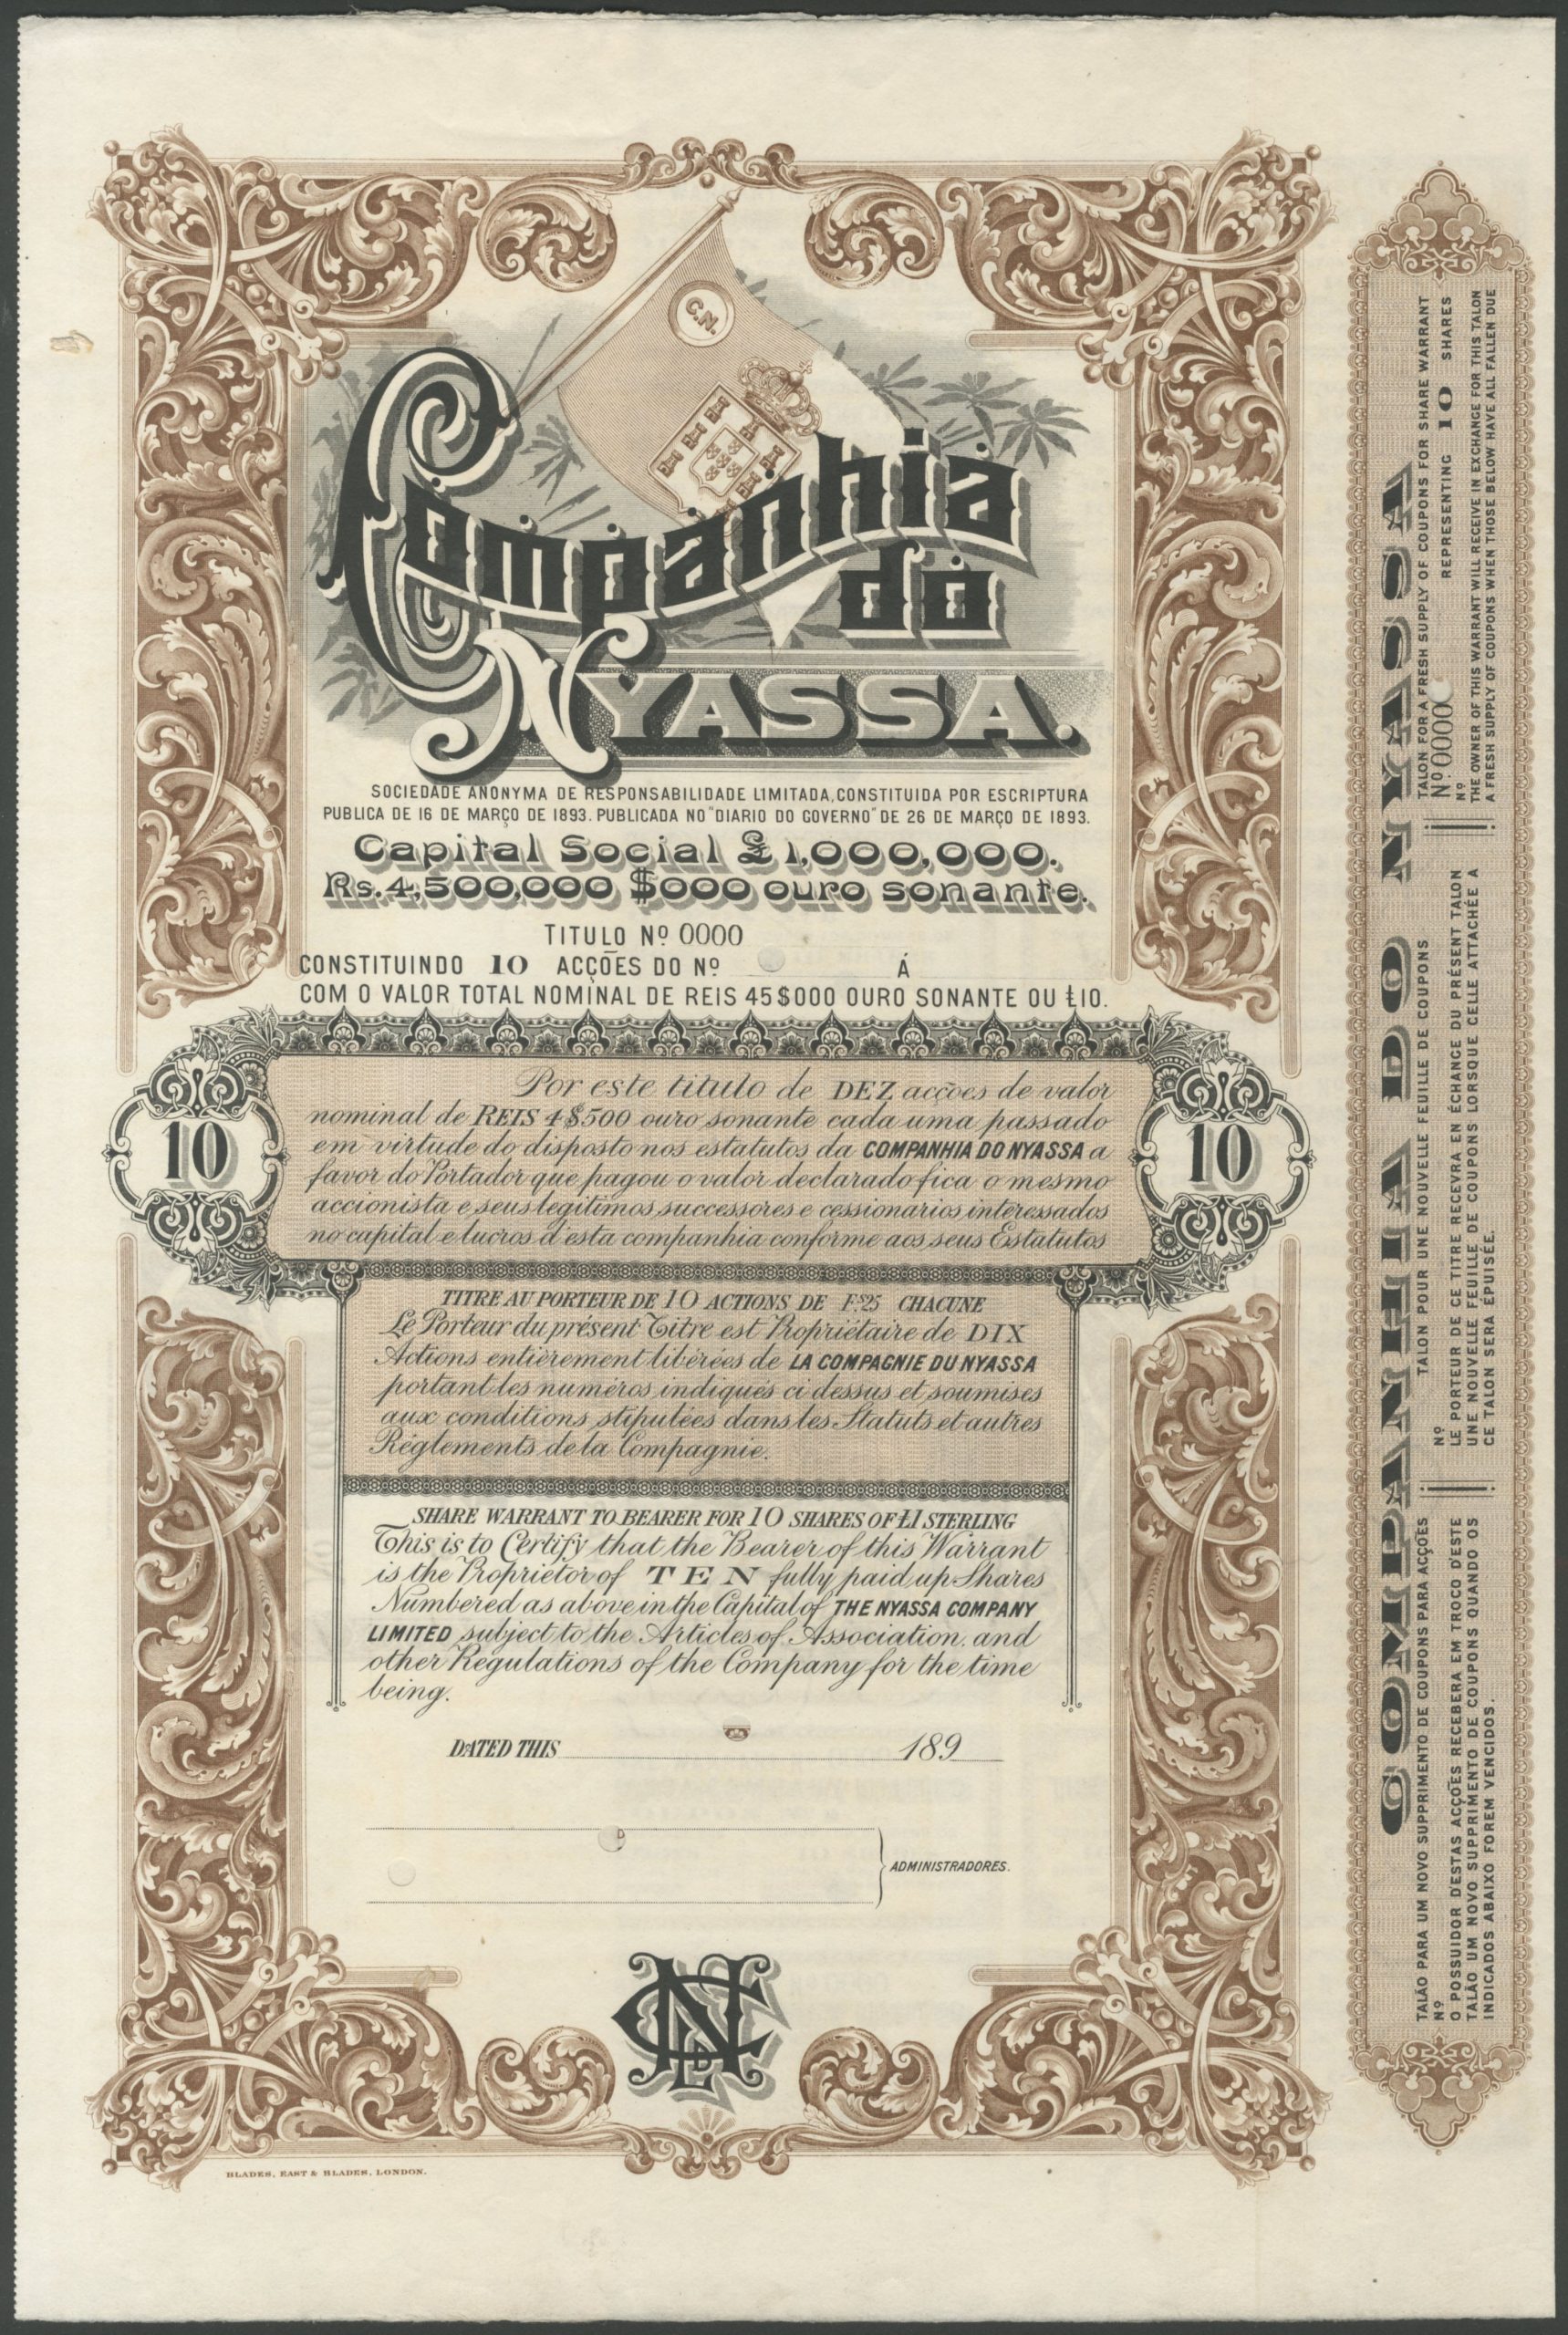 C.N.
Companhia
do
NYASSA.
SOCIEDADE ANONYMA DE RESPONSABILIDADE LIMITADA, CONSTITUIDA POR ESCRIPTURA
PUBLICA DE 16 DE MARÇO DE 1893. PUBLICADA NO "DIARIO DO GOVERNO" DE 26 DE MARÇO DE 1893.
Capital Social £1,000,000.
Rs. 4,500,000 $000 ouro sonante.
TITULO Nº 0000
CONSTITUINDO 10 ACÇÕES DO Nº Á
COM O VALOR TOTAL NOMINAL DE REIS 45$000 OURO SONANTE OU £10.
10
10
Por este titulo de DEZ acções de valor
nominal de REIS 4$500 ouro sonante cada uma passado
em virtude do disposto nos estatutos da COMPANHIA DO NYASSA a
favor do Portador que pagou o valor declarado fica o mesmo
accionista e seus legitimos successores e cessionarios interessados
no capital e lucros d'esta companhia conforme aos seus Estatutos
TITRE AU PORTEUR DE 10 ACTIONS DE Fs. 25 CHACUNE
Le Porteur du présent Titre est Propriétaire de DIX
Actions entièrement libérées de LA COMPAGNIE DU NYASSA
portant les numéros indiques ci dessus et soumises
aux conditions stipulées dans les Statuts et autres
Réglements de la Compagnie.
SHARE WARRANT TO BEARER FOR 10 SHARES OF £1 STERLING
This is to Certify that the Bearer of this Warrant
is the Proprietor of TEN fully paid up Shares
Numbered as above in the Capital of THE NYASSA COMPANY
LIMITED subject to the Articles of Association, and
other Regulations of the Company for the time
being.
DATED THIS 189
ADMINISTRADORES.
CNLD
BLADES, EAST & BLADES, LONDON.
COMPANHIA DO NYASSA
TALÃO PARA UM NOVO SUPPRIMENTO DE COUPONS PARA ACÇÕES
Nº
O POSSUIDOR D'ESTAS ACÇÕES RECEBERA EM TROCO D'ESTE
TALÃO UM NOVO SUPPRIMENTO DE COUPONS QUANDO OS
INDICADOS ABAIXO FOREM VENCIDOS.
TALON POUR UNE NOUVELLE FEUILLE DE COUPONS
Nº
LE PORTEUR DE CE TITRE RECEVRA EN ÉCHANGE DU PRÉSENT TALON
UNE NOUVELLE FEUILLE DE COUPONS LORSQUE CELLE ATTACHÉE A
CE TALON SERA ÉPUISÉE.
TALON FOR A FRESH SUPPLY OF COUPONS FOR SHARE WARRANT
Nº 0000 REPRESENTING 10 SHARES
Nº
THE OWNER OF THIS WARRANT WILL RECEIVE IN EXCHANGE FOR THIS TALON
A FRESH SUPPLY OF COUPONS WHEN THOSE BELOW HAVE ALL FALLEN DUE